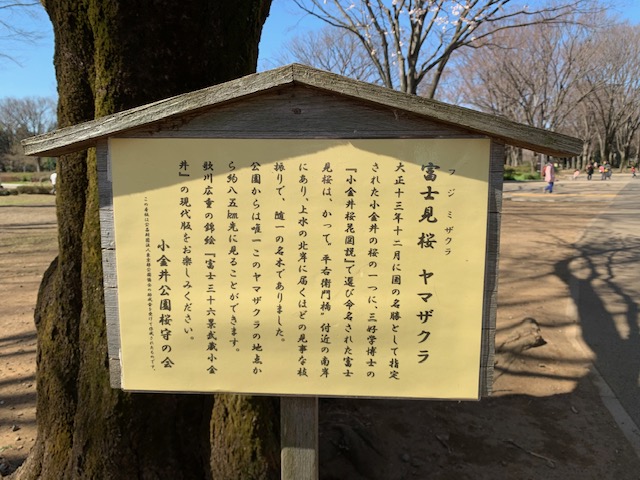 フジ ミザクラ
富士見桜 ヤマザクラ
大正十三年十二月に国の名勝として指定
された小金井の桜の一つに、三好学博士の
『小金井桜花図説』で選び命名された富士
見桜は、かつて、平右衛門橋 付近の南岸
にあり、上水の北岸に届くほどの見事な枝
振りで、随一の名木でありました。
公園からは唯一このヤマザクラの地点か
ら約八五㎞先に見ることができます。
歌川広重の錦絵『富士三十六景武蔵小金
井』の現代版をお楽しみください。
小金井公園桜守の会
この看板は公益財団法人東京都公園協会の助成金を受けて作成されたものです。